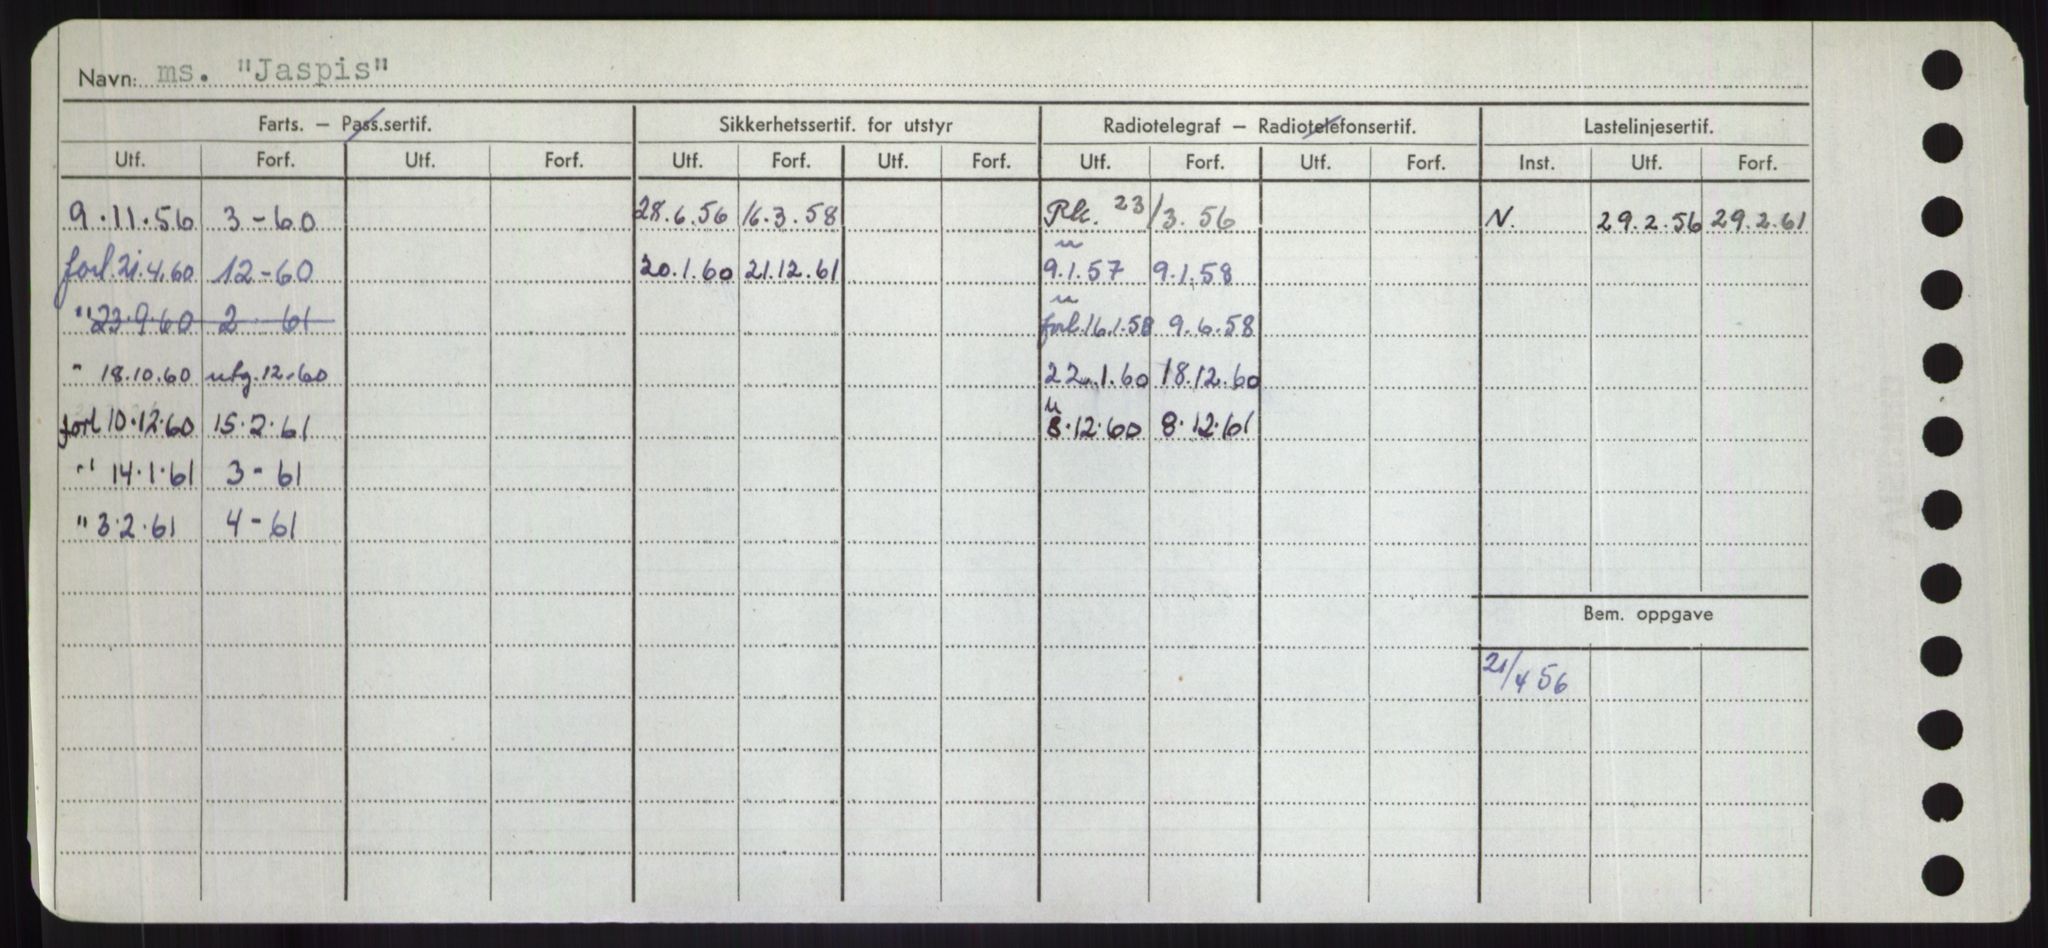 Navn: ms. "Jaspis"
Farts. — Pass.sertif. Sikkerhetssertif. for utstyr Radiotelegraf — Radiotelefonsertif. Lastelinjesertif.
Utf. Forf. Utf. Forf. Utf. Forf. Utf. Forf. Utf. Forf. Utf. Forf. Inst. Utf. Forf.
9.11.56 3-60 28.6.56 16.3.58 Rk. 23/3.56 N. 29.2.56 29.2.61
forl. 21.4.60 12-60 20.1.60 21.12.61 9.1.57 9.1.58
" 23.9.60 2 - 61 forl. 16.1.58 9.6.58
" 18.10.60 utg. 12-60 22.1.60 18.12.60
forl 10.12.60 15.2.61 8.12.60 8.12.61
" 14.1.61 3-61
" 3.2.61 4-61
Bem. oppgave
21/4 56